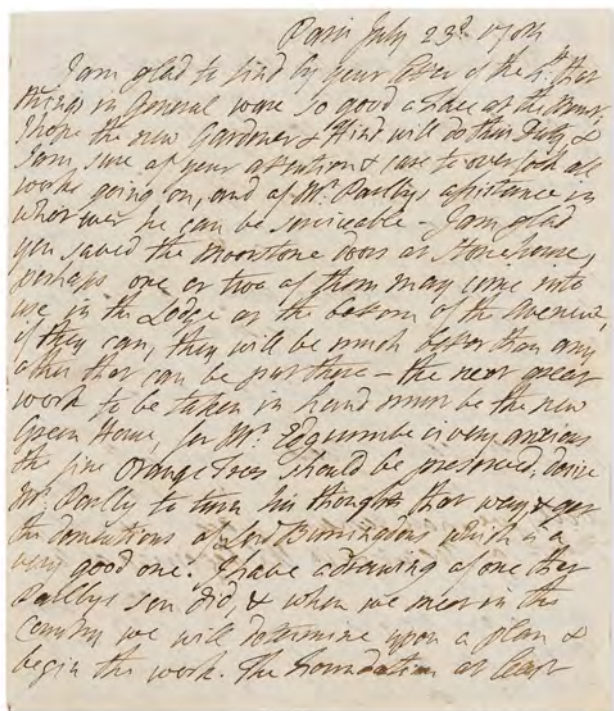 Paris July 23d. 1784
I am glad to find by your letter of the 4th. that
things in General were in so good a State at the Mount,
I hope the new Gardner & Hind will do their Duty, &
I am sure of your attention & care to overlook all
works going on, and of Mr. Parlbys assistance in
whatever he can be serviceable - I am glad
you saved the Moorstone doors at Stonehouse,
perhaps one or two of them may come into
use in the Lodge at the bottom of the Avenue,
if they can, they will be much better than any
other that can be put there - the next great
work to be taken in hand must be the new
Green House, for Mr. Edgcumbe is very anxious
the fine Orange Trees should be preserved, desire
Mr. Parlby to turn his thoughts that way & get
the dimentions of Lord Borringdons which is a
very good one. I have a drawing of one that
Parlbys son did, & when we meet in the
Country we will determine upon a plan &
begin the work. The foundation at least